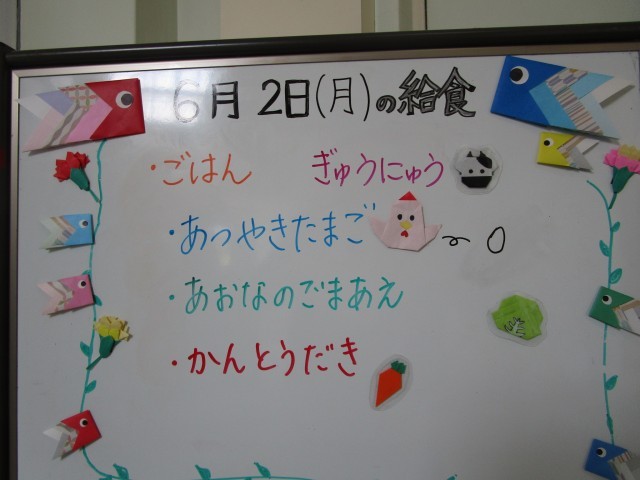 6月2日(月)の給食
・ごはん ぎゅうにゅう
・あつやきたまご
・あおなのごまあえ
・かんとうだき